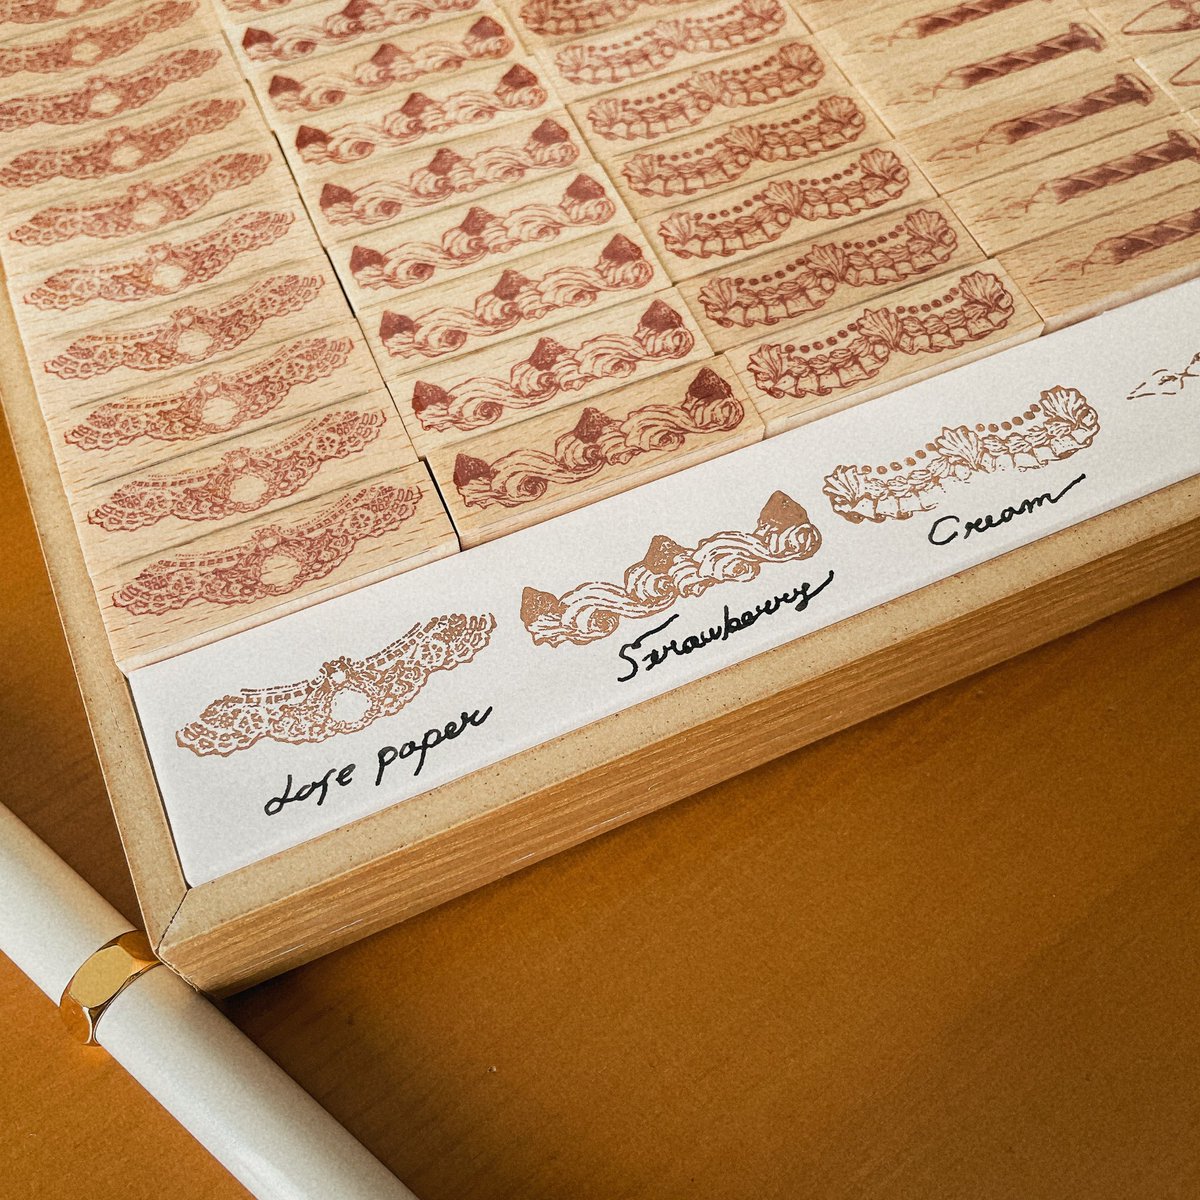 Lace paper
Strawberry
Cream